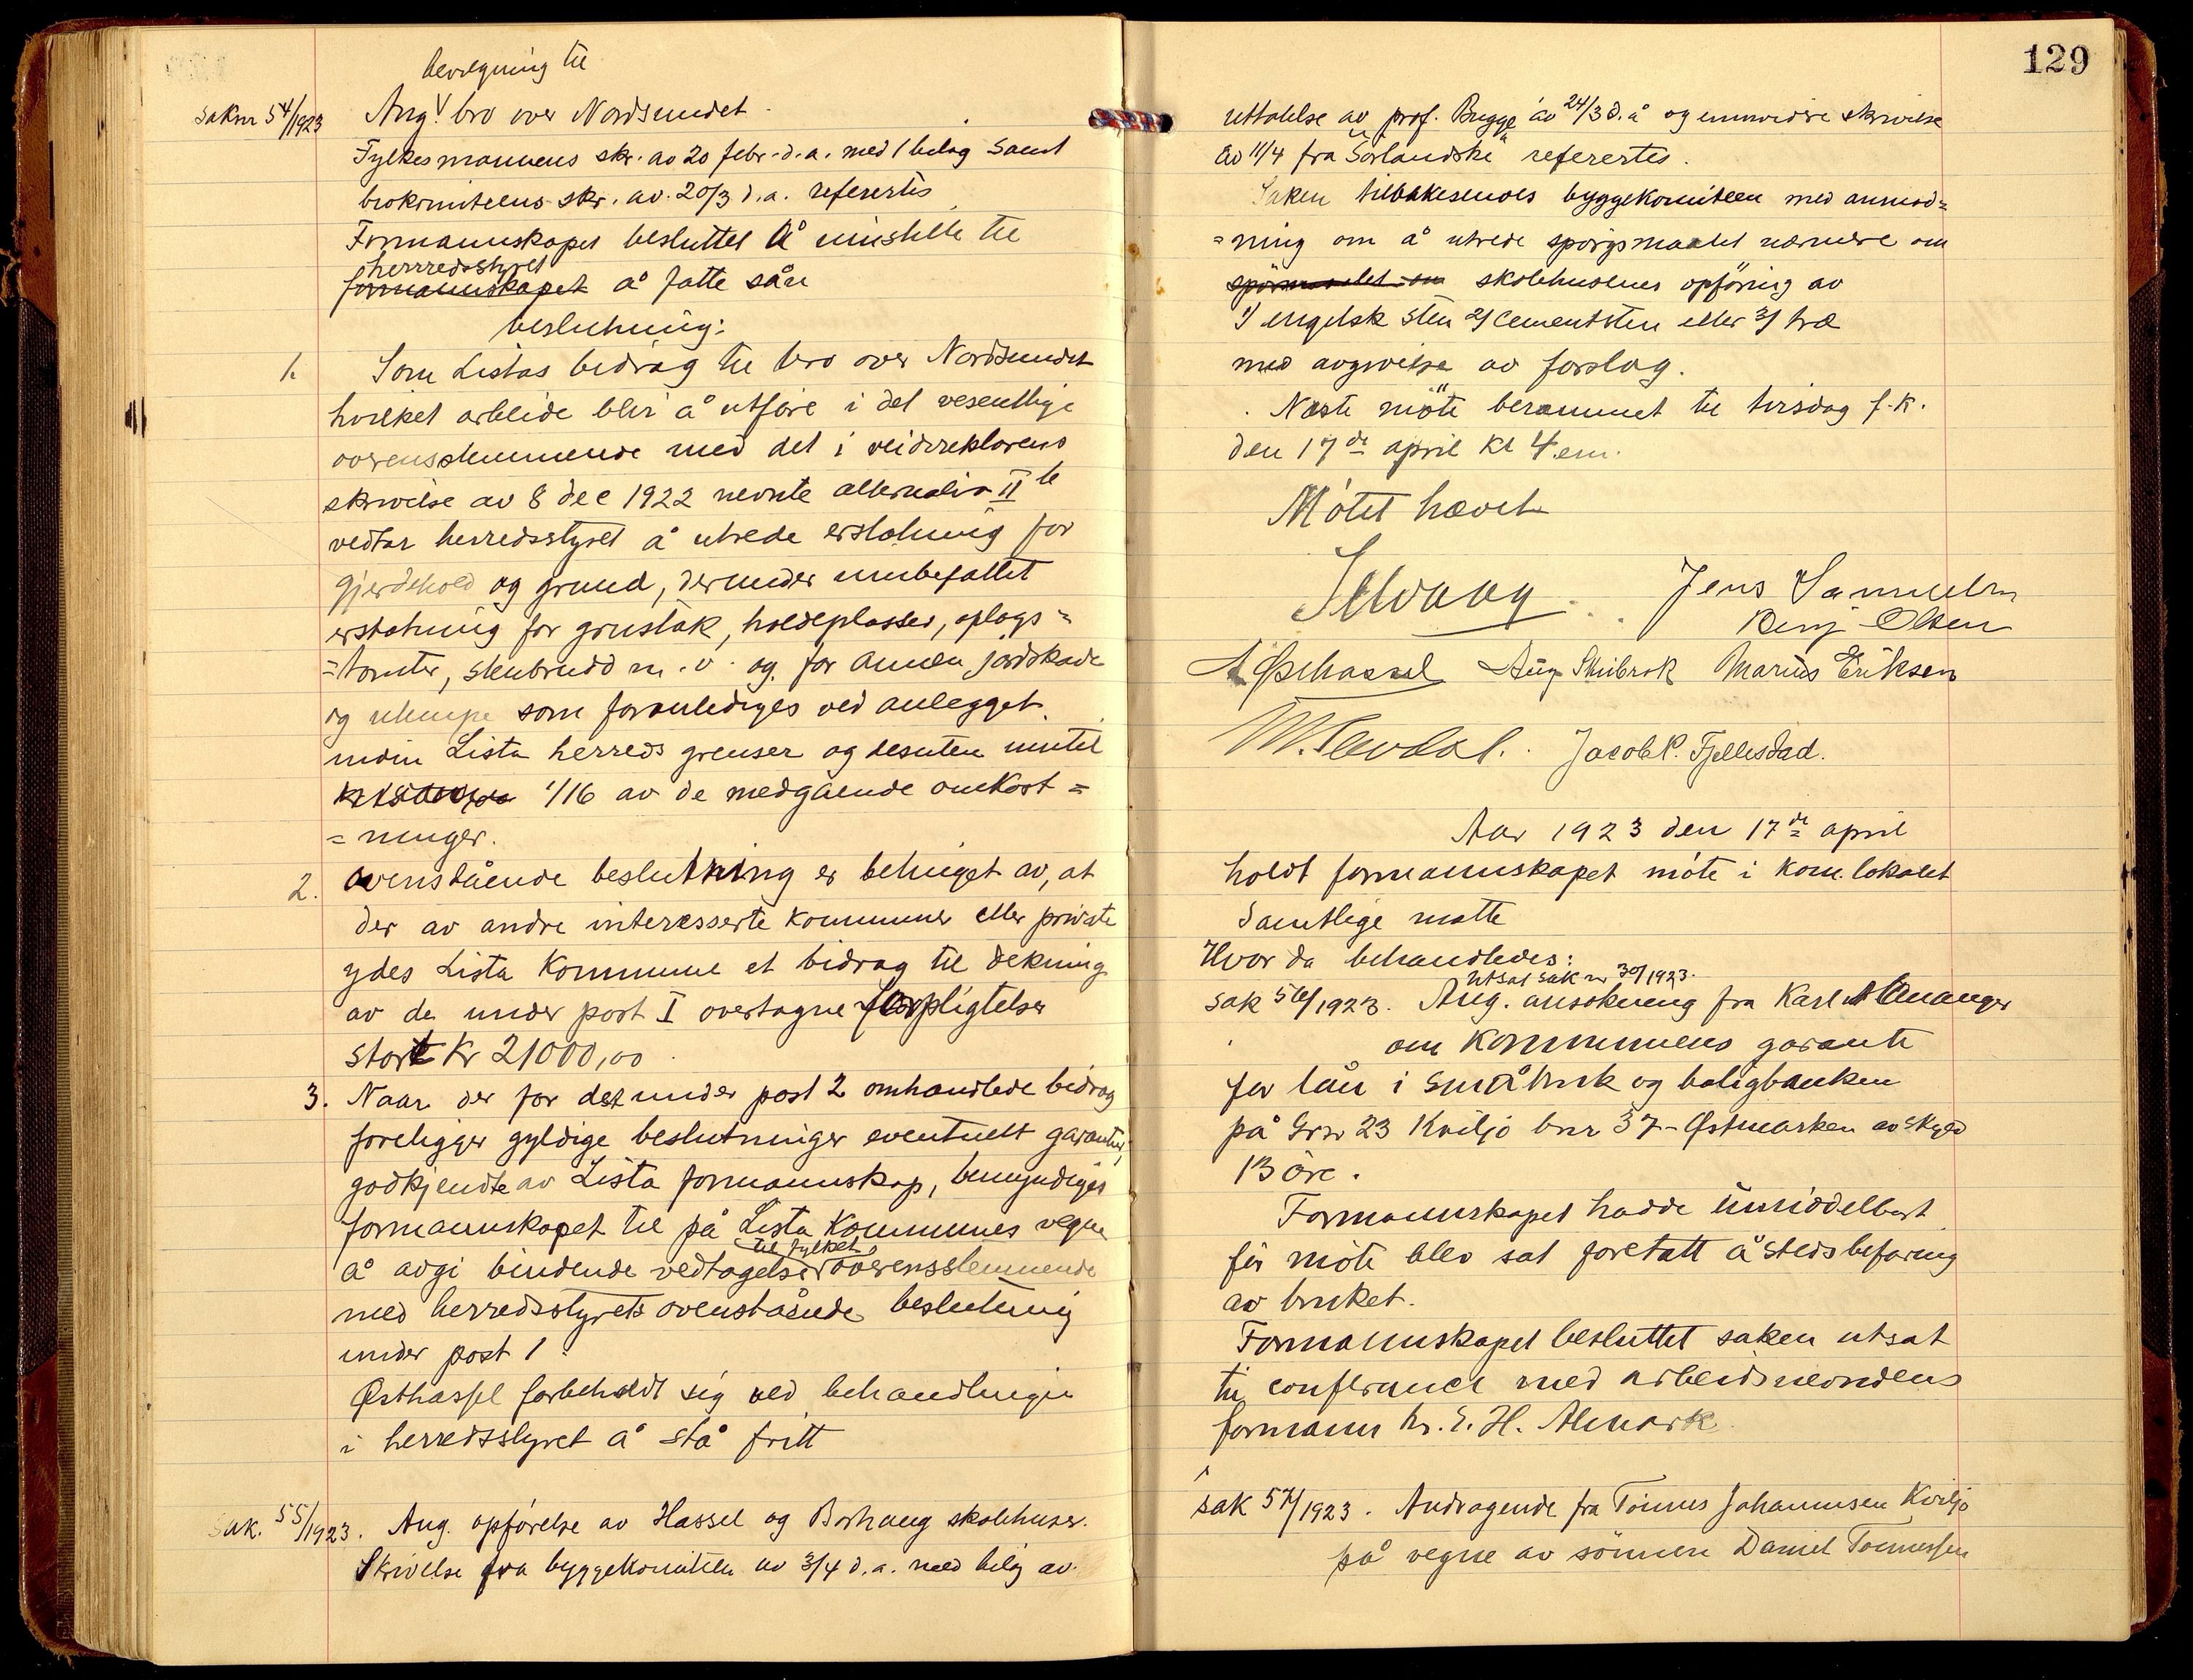 bevilgning til
Sak nr 54/1923 Ang. bro over Nordsundet.
Fylkesmannens skr. av 20 febr. d.a. med 1 bilag samt
brokomiteens skr. av. 20/3 d.a. refertes
Formannskapet besluttet å innstille til
herredsstyret
formannskapet å fatte sån
beslutning:
1. Som Listas bidrag til bro over Nordsundet
hvilket arbeide blir å utføre i det vesentlige
overensstemmende med det i veidirektørens
skrivelse av 8 dec 1922 nevnte alternativ II te
vedtar herredsstyret å utrede erstatning for
gjerdehold og grund, derunder innbefattet
erstatning for grustak, holdeplasser, oplags=
=tomter, stenbrudd m.v. og for annen jordskade
og ulempe som foranlediges ved anlegget
innen Lista herreds grenser og desuten inntil
1/16 av de medgående omkost=
=ninger.
2. Ovenstående beslutning er betinget av, at
der av andre interesserte kommuner eller private
ydes Lista Kommune et bidrag til dekning
av de under post I overtagne forpligtelser
stort Kr 21000,00
3. Naar der for det under post 2 omhandlede bidrag
foreligger gyldige beslutninger eventuelt garantier,
godkjendte av Lista formannskap, bemyndiges
formannskapet til på Lista Kommunes vegne
til fylket
å avgi bindende vedtagelse overensstemmende
med herredsstyrets ovenstående beslutning
under post 1.
Østhassel forbeholdt sig ved behandlingen
i herredsstyret å stå fritt
Sak. 55/1923. Ang. opførelse av Hassel og Borhaug skolehuser.
Skrivelse fra byggekomiteen av 3/4 d.a. med bilag av
129
uttalelse av prof. Bugge av 24/3 d.å og ennvidere skrivelse
av 11/4 fra "Sörlandske" refertes.
Saken tilbakesendes byggekomiteen med anmod=
=ning om å utrede spörgsmaalet nærmere om
spörsmaalet om skolehusenes opföring av
1/ engelsk sten 2/ cementsten eller 3/ træ
med avgivelse av forslag.
Næste möte berammet til tirsdag f.k.
den 17de april kl 4 em.
Mötet hævet
Jens Samuelsen
Benj Olsen
A Østhassel Aug Stubrok Marius Eriksen
Jacob P. Fjellestad.
Aar 1923 den 17de april
holdt formannskapet möte i kom. lokalet
Samtlige møtte
Hvor da behandledes:
Utsat sak nr 30/1923.
Sak 56/1923. Ang. ansökning fra Karl A
om Kommunens garanti
for lån i Småbruk og boligbanken
på Grnr 23 Kviljo bnr 37 - Østmarken av skyld
13 öre.
Formannskapet hadde umiddelbart
för möte blev sat foretatt åstedsbefaring
av bruket.
Formannskapet besluttet saken utsat
til conferance med arbeidsnevndens
formann hr. E. H. Almark
Sak 57/1923. Andragende fra Tönnes Johannesen Kviljo
på vegne av sönnen Daniel Tönnessen